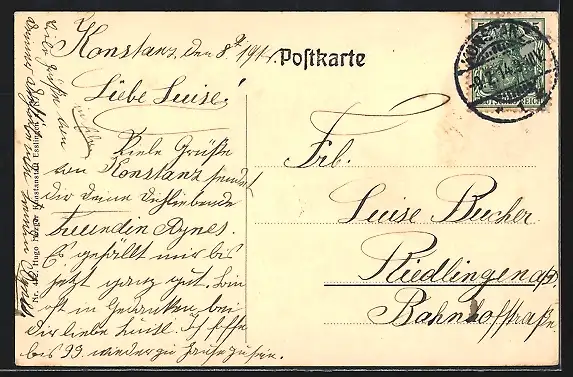 Konstanz, den 8. 191
Liebe Luise!
Viele Grüße
von Konstanz sendet
Dir Deine Dich liebende
Freundin Agnes.
Es gefällt mir bis
jetzt ganz gut. Bin
oft in Gedanken bei
Dir liebe Luise. Ich hoffe
bis 23. wieder zu Hause zu sein.
Viele Grüße an
Nr. Hugo Kunstanstalt Esslingen
Postkarte
KONSTANZ
Frl.
Luise Bucher
Riedlingen a/D.
Bahnhofstraße